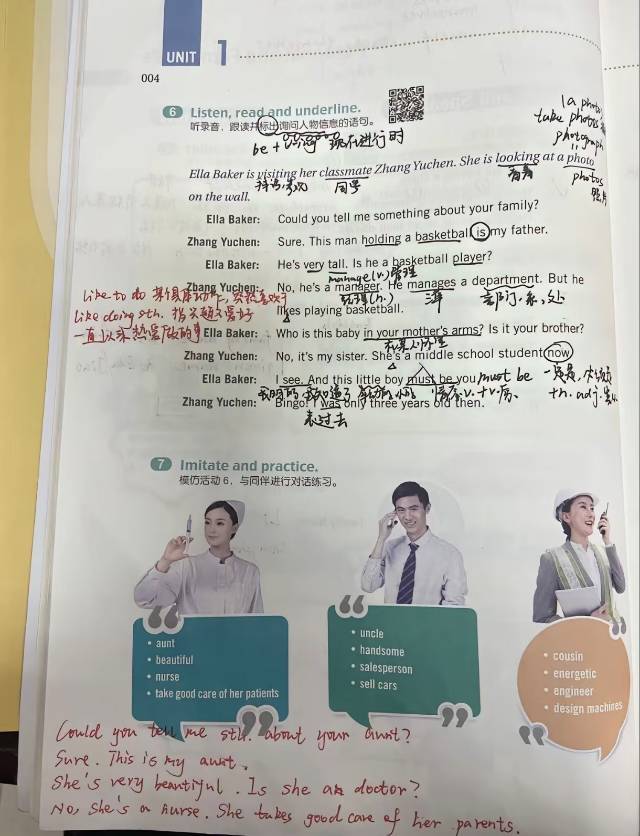 UNIT 1
004
6 Listen, read and underline.
听录音，跟读并标出询问人物信息的语句。
be + doing 现在进行时
take photos
photograph
Ella Baker is visiting her classmate Zhang Yuchen. She is looking at a photo
同学
photos
照片
on the wall.
Ella Baker: Could you tell me something about your family?
Zhang Yuchen: Sure. This man holding a basketball is my father.
Ella Baker: He's very tall. Is he a basketball player?
manage(v.)管理
Zhang Yuchen: No, he's a manager. He manages a department. But he
经理(n.)
部门.系,处
likes playing basketball.
like to do
like doing sth.
Ella Baker: Who is this baby in your mother's arms? Is it your brother?
Zhang Yuchen: No, it's my sister. She's a middle school student now
Ella Baker: I see. And this little boy must be you
must be
Zhang Yuchen: Bingo! I was only three years old then.
表过去
7 Imitate and practice.
模仿活动 6，与同伴进行对话练习。
• aunt
• beautiful
• nurse
• take good care of her patients
• uncle
• handsome
• salesperson
• sell cars
• cousin
• energetic
• engineer
• design machines
Could you tell me sth. about your aunt?
Sure. This is my aunt.
She's very beautiful. Is she a doctor?
No, she's a nurse. She takes good care of her parents.